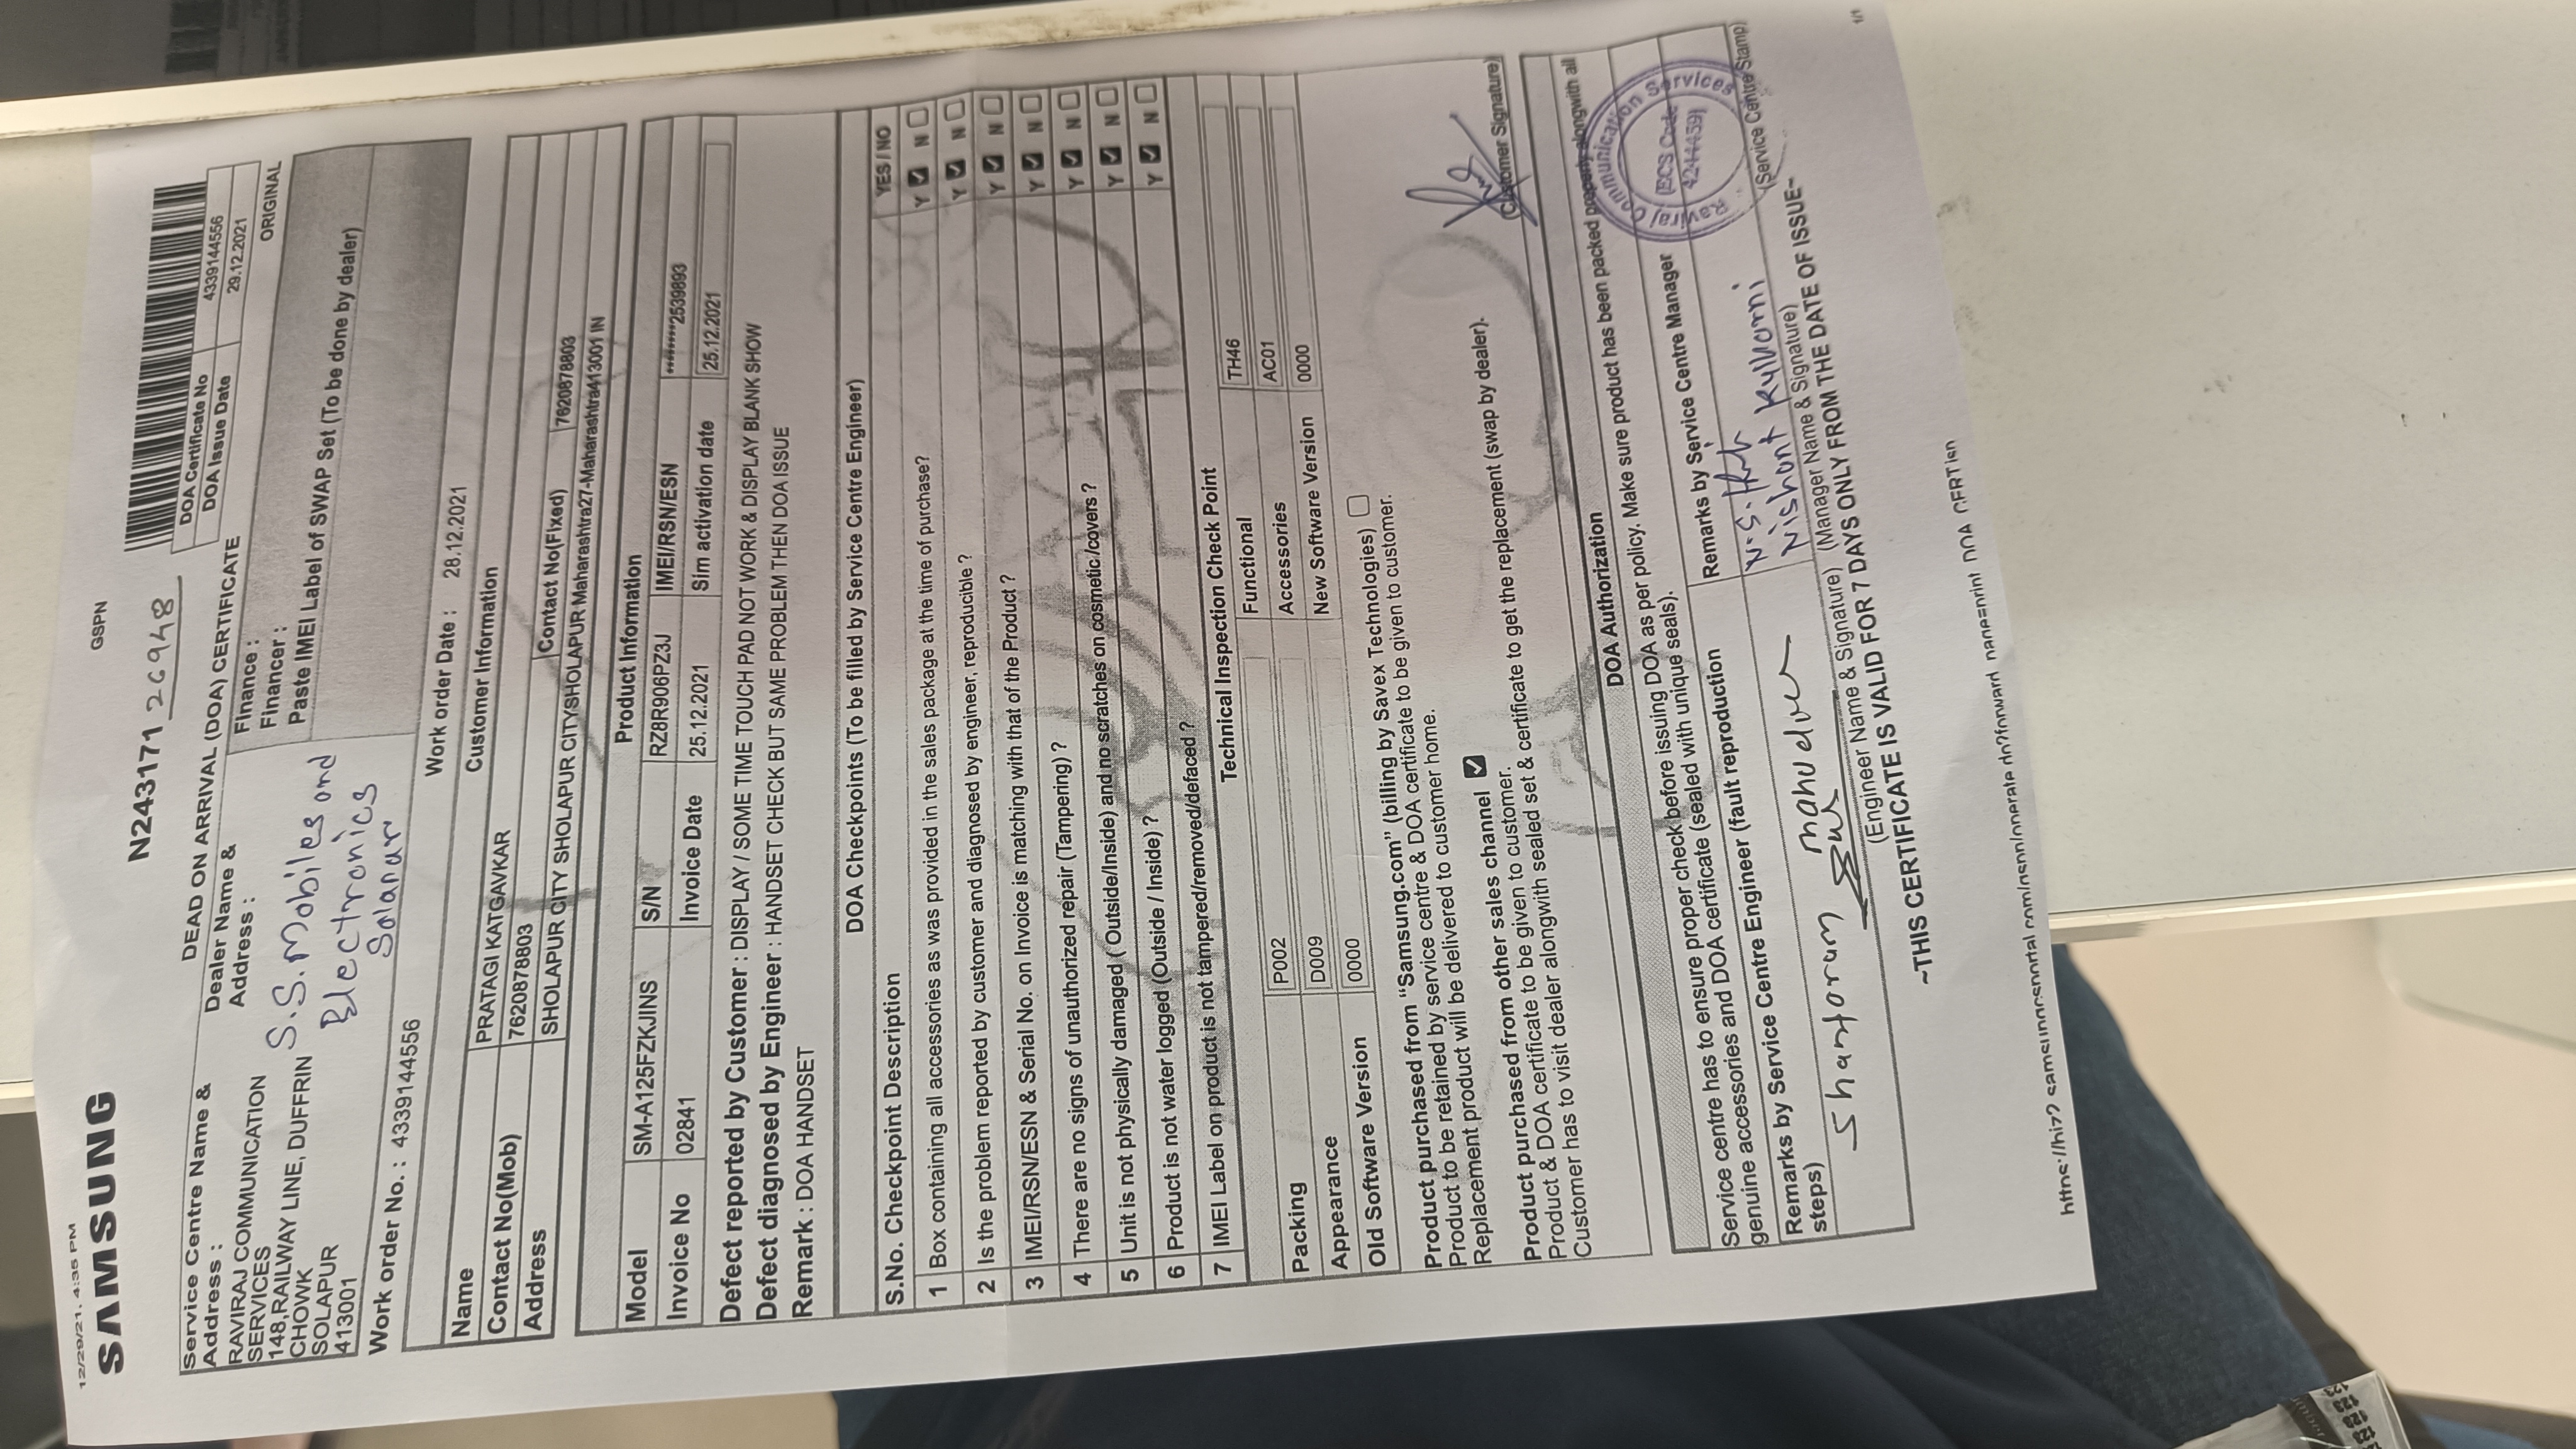 12/29/21, 4:35 PM
GSPN
SAMSUNG
N243171 26948
DEAD ON ARRIVAL (DOA) CERTIFICATE
DOA Certificate No 4339144556
DOA Issue Date 29.12.2021
ORIGINAL
Service Centre Name & Address :
RAVIRAJ COMMUNICATION
SERVICES
148,RAILWAY LINE, DUFFRIN
CHOWK
SOLAPUR
413001
Dealer Name & Address :
S.S. Mobiles and
Electronics
Finance :
Financer :
Paste IMEI Label of SWAP Set (To be done by dealer)
Work order No. : 4339144556
Work order Date : 28.12.2021
Customer Information
Name PRATAGI KATGAVKAR
Contact No(Mob) 7620878803 Contact No(Fixed) 7620878803
Address SHOLAPUR CITY SHOLAPUR CITYSHOLAPUR-Maharashtra27-Maharashtra413001 IN
Product Information
Model SM-A125FZKJINS S/N RZ8R906PZ3J IMEI/RSN/ESN ********2539893
Invoice No 02841 Invoice Date 25.12.2021 Sim activation date 25.12.2021
Defect reported by Customer : DISPLAY / SOME TIME TOUCH PAD NOT WORK & DISPLAY BLANK SHOW
Defect diagnosed by Engineer : HANDSET CHECK BUT SAME PROBLEM THEN DOA ISSUE
Remark : DOA HANDSET
DOA Checkpoints (To be filled by Service Centre Engineer)
S.No. Checkpoint Description YES / NO
1 Box containing all accessories as was provided in the sales package at the time of purchase? Y N
2 Is the problem reported by customer and diagnosed by engineer, reproducible ? Y N
3 IMEI/RSN/ESN & Serial No. on Invoice is matching with that of the Product ? Y N
4 There are no signs of unauthorized repair (Tampering) ? Y N
5 Unit is not physically damaged ( Outside/Inside) and no scratches on cosmetic/covers ? Y N
6 Product is not water logged (Outside / Inside) ? Y N
7 IMEI Label on product is not tampered/removed/defaced ? Y N
Technical Inspection Check Point
Packing P002 Functional TH46
Appearance D009 Accessories AC01
Old Software Version 0000 New Software Version 0000
Product purchased from "Samsung.com" (billing by Savex Technologies)
Product to be retained by service centre & DOA certificate to be given to customer.
Replacement product will be delivered to customer home.
Product purchased from other sales channel
Product & DOA certificate to be given to customer.
Customer has to visit dealer alongwith sealed set & certificate to get the replacement (swap by dealer).
(Customer Signature)
DOA Authorization
Service centre has to ensure proper check before issuing DOA as per policy. Make sure product has been packed properly alongwith all
genuine accessories and DOA certificate (sealed with unique seals).
Remarks by Service Centre Engineer (fault reproduction steps)
Remarks by Service Centre Manager
Raviraj Communication Services
(ECS Code
4244439)
(Engineer Name & Signature) (Manager Name & Signature) (Service Centre Stamp)
~THIS CERTIFICATE IS VALID FOR 7 DAYS ONLY FROM THE DATE OF ISSUE~
1/1